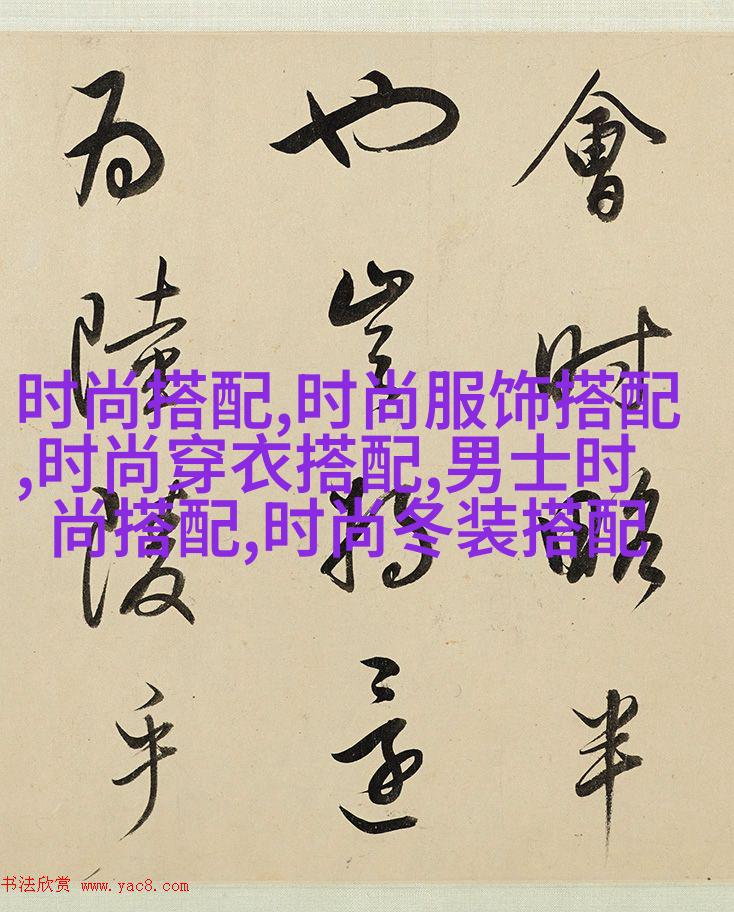 會時略半
也豈將
為陵乎
时尚搭配,时尚服饰搭配
,时尚穿衣搭配,男士时
尚搭配,时尚冬装搭配
书法欣赏 www.yac8.com